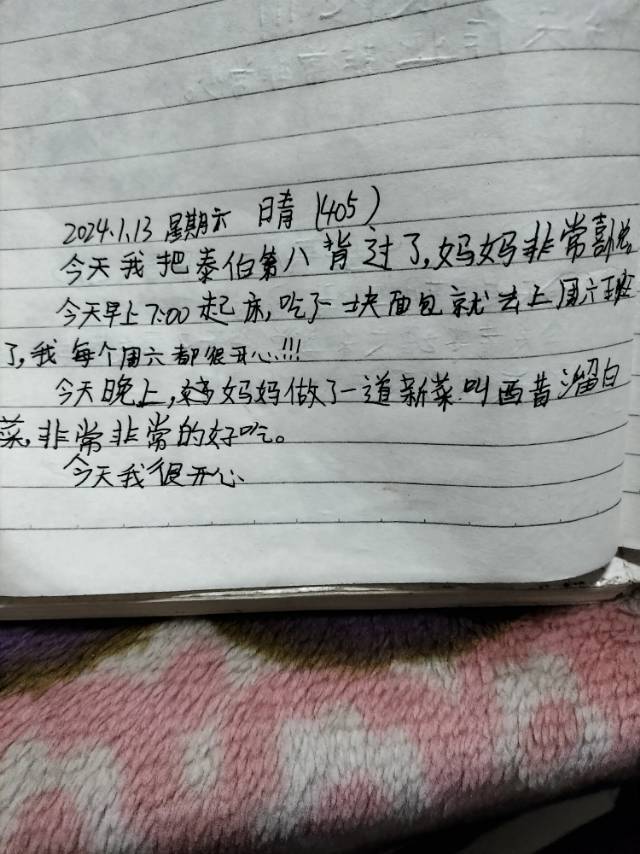 2024.1.13 星期六 晴 (405)
今天我把泰伯第八背过了,妈妈非常喜悦。
今天早上7:00起床,吃了一块面包就去上周六班
了,我每个周六都很开心!!!
今天晚上,妈妈做了一道新菜叫西昔溜白
菜,非常非常的好吃。
今天我很开心